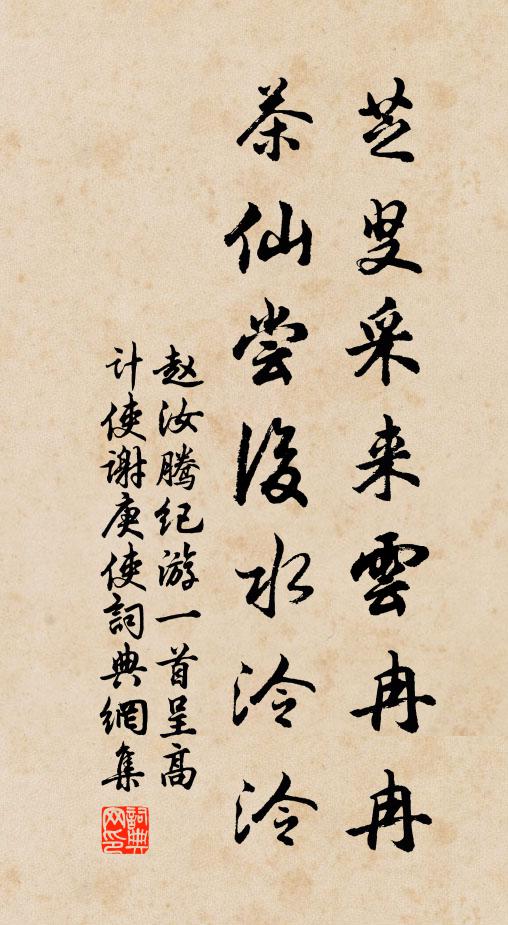 芝叟采来雲冉冉
茶仙尝後水泠泠
赵汝腾纪游一首呈高
计使谢庾使詞典網集
詞典网印